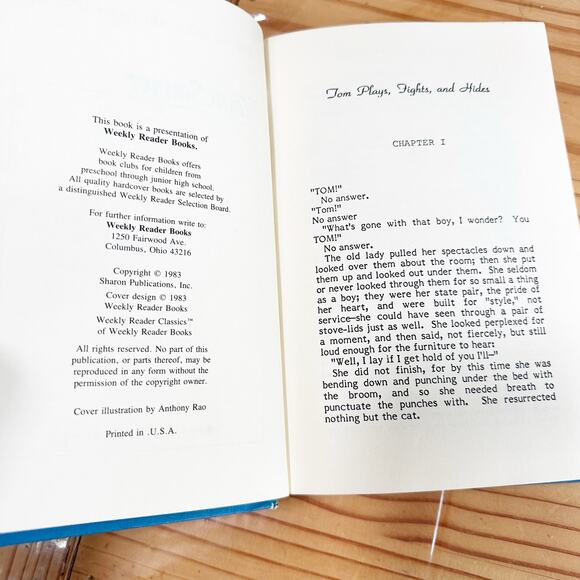 This book is a presentation of
Weekly Reader Books.
Weekly Reader Books offers
book clubs for children from
preschool through junior high school.
All quality hardcover books are selected by
a distinguished Weekly Reader Selection Board.
For further information write to:
Weekly Reader Books
1250 Fairwood Ave.
Columbus, Ohio 43216
Copyright © 1983
Sharon Publications, Inc.
Cover design © 1983
Weekly Reader Books
Weekly Reader Classics™
of Weekly Reader Books
All rights reserved. No part of this
publication, or parts thereof, may be
reproduced in any form without the
permission of the copyright owner.
Cover illustration by Anthony Rao
Printed in .U.S.A.
Tom Plays, Fights, and Hides
CHAPTER I
"TOM!"
No answer.
"Tom!"
No answer
"What's gone with that boy, I wonder? You
TOM!"
No answer.
The old lady pulled her spectacles down and
looked over them about the room; then she put
them up and looked out under them. She seldom
or never looked through them for so small a thing
as a boy; they were her state pair, the pride of
her heart, and were built for "style," not
service—she could have seen through a pair of
stove-lids just as well. She looked perplexed for
a moment, and then said, not fiercely, but still
loud enough for the furniture to hear:
"Well, I lay if I get hold of you I'll—"
She did not finish, for by this time she was
bending down and punching under the bed with
the broom, and so she needed breath to
punctuate the punches with. She resurrected
nothing but the cat.